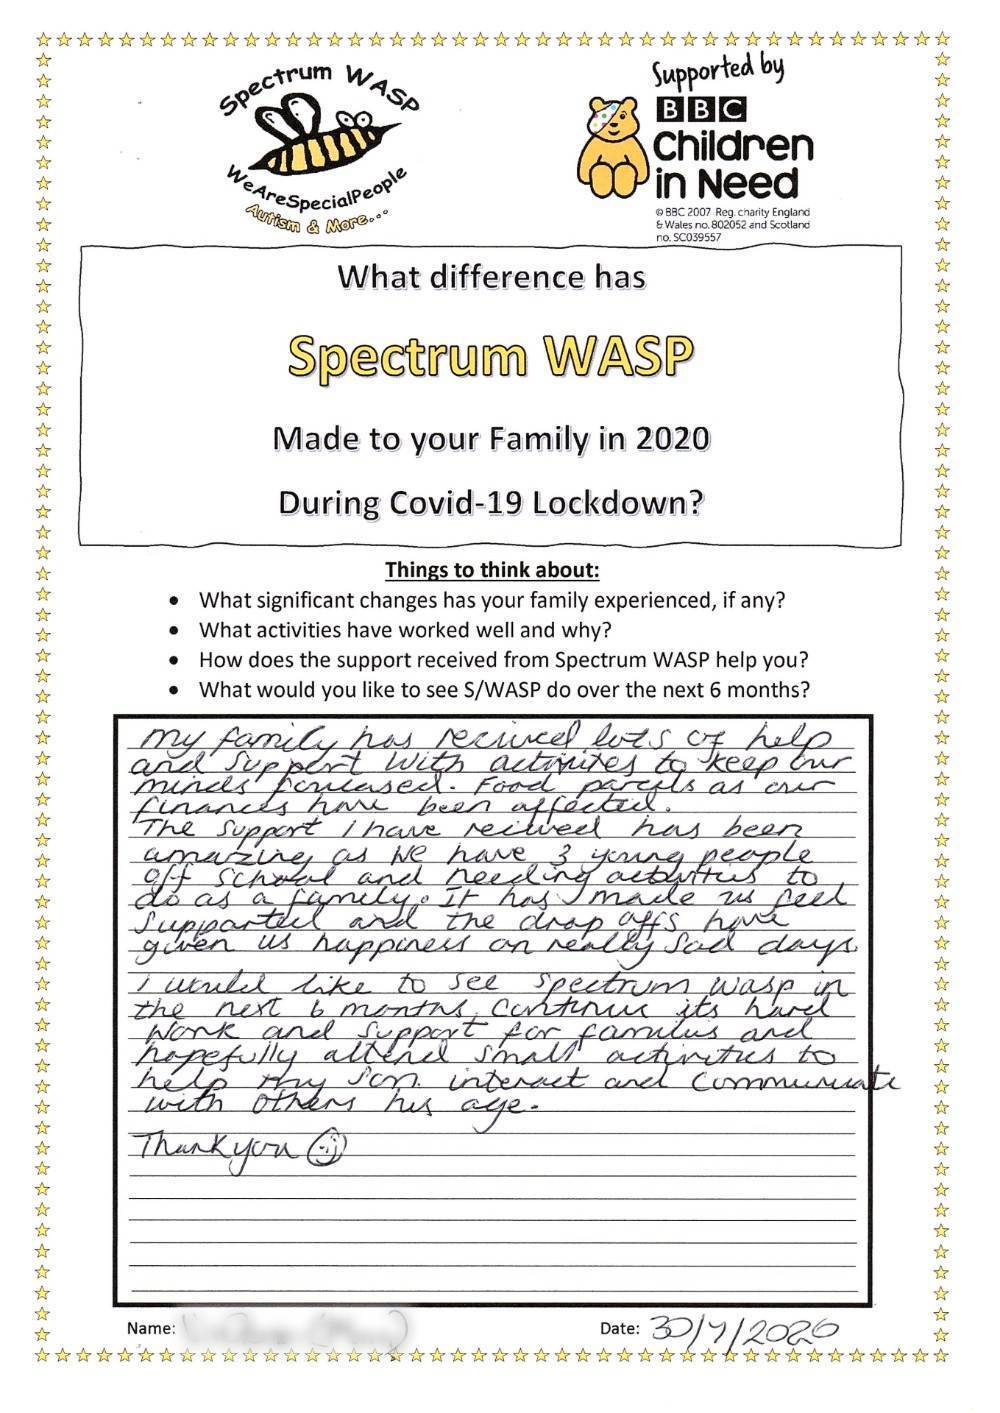 Spectrum WASP
WeAreSpecialPeople
Autism & More...
Supported by
BBC
Children
in Need
© BBC 2007 Reg. charity England
& Wales no. 802052 and Scotland
no. SC039557
What difference has
Spectrum WASP
Made to your Family in 2020
During Covid-19 Lockdown?
Things to think about:
• What significant changes has your family experienced, if any?
• What activities have worked well and why?
• How does the support received from Spectrum WASP help you?
• What would you like to see S/WASP do over the next 6 months?
My family has recived lots of help
and support with activites to keep our
minds foucased. Food parcels as our
finances have been affected.
The support I have recived has been
amazing as we have 3 young people
off school and needing activitus to
do as a family. It has made us feel
supported and the drop offs have
given us happiness on really sad days.
I would like to see spectrum wasp in
the next 6 months, continue its hard
work and support for familius and
hopefully attend small activitus to
help my son interact and communicate
with others his age.
Thankyou
Name:
Date: 30/7/2020